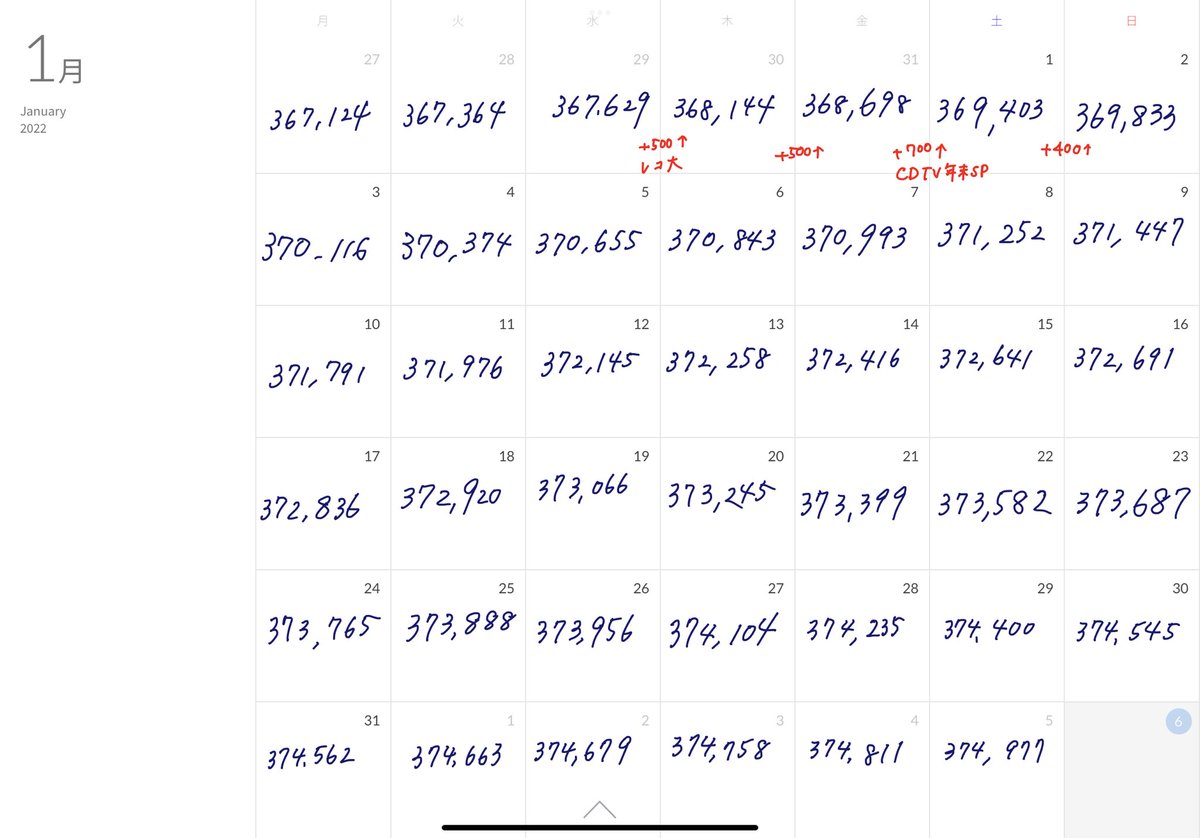 1月
January
2022
月 火 水 木 金 土 日
27 28 29 30 31 1 2
367,124 367,364 367.629 368,144 368,698 369,403 369,833
+500↑ +500↑ +700↑ +400↑
レコ大 CDTV年末SP
3 4 5 6 7 8 9
370-116 370,374 370,655 370,843 370,993 371,252 371,447
10 11 12 13 14 15 16
371,791 371,976 372,145 372,258 372,416 372,641 372,691
17 18 19 20 21 22 23
372,836 372,920 373,066 373,245 373,399 373,582 373,687
24 25 26 27 28 29 30
373,765 373,888 373,956 374,104 374,235 374.400 374.545
31 1 2 3 4 5 6
374.562 374.663 374,679 374,758 374.811 374,977